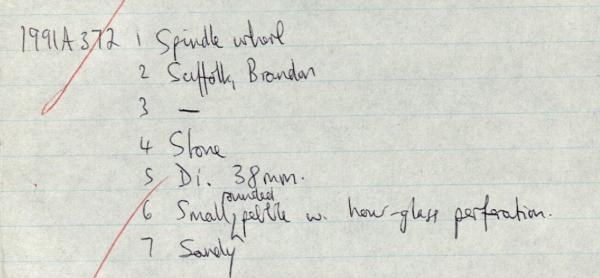 1991A372 1 Spindle whorl
2 Suffolk, Brandon
3 —
4 Stone
5 Di. 38mm.
6 Small, rounded pebble w. hour-glass perforation.
7 Sandy